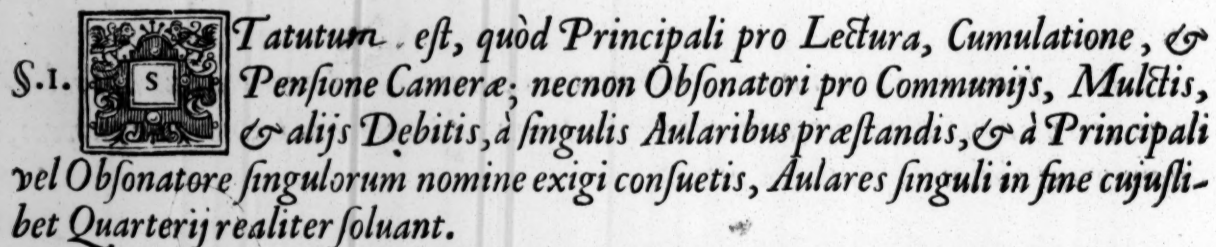 STatutum est, quòd Principali pro Lectura, Cumulatione, &
§.1. Pensione Cameræ; necnon Obsonatori pro Communijs, Mulctis,
& alijs Debitis, à singulis Aularibus præstandis, & à Principali
vel Obsonatore singulorum nomine exigi consuetis, Aulares singuli in fine cujusli-
bet Quarterij realiter soluant.